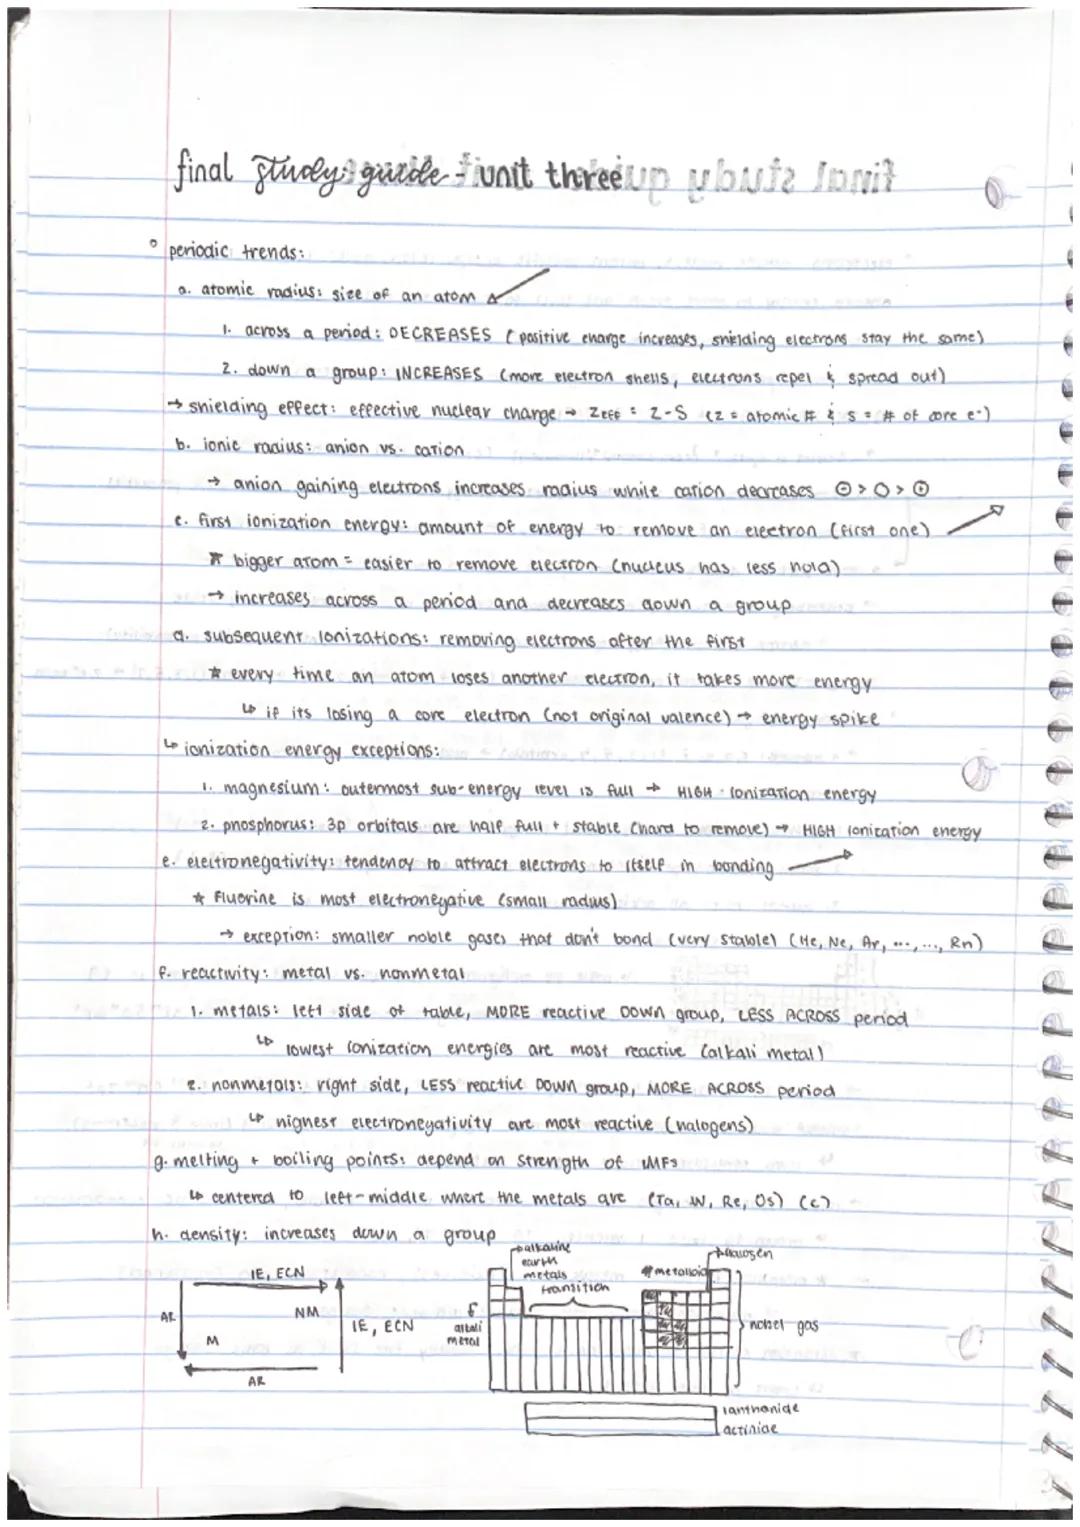 final study guide - unit three
◦ periodic trends:
a. atomic radius: size of an atom ↙
1. across a period: DECREASES (positive charge increases, shielding electrons stay the same)
2. down a group: INCREASES (more electron shells, electrons repel & spread out)
→ shielding effect: effective nuclear charge → Zeff = Z-S (Z = atomic # & S = # of core e-)
b. ionic radius: anion vs. cation
→ anion gaining electrons increases radius while cation decreases ⊖ > O > ⊕
c. first ionization energy: amount of energy to remove an electron (first one) ↗
* bigger atom = easier to remove electron (nucleus has less hold)
→ increases across a period and decreases down a group
d. subsequent ionizations: removing electrons after the first
* every time an atom loses another electron, it takes more energy
↳ if its losing a core electron (not original valence) → energy spike
↳ ionization energy exceptions:
1. magnesium: outermost sub-energy level is full → HIGH ionization energy
2. phosphorus: 3p orbitals are half full + stable (hard to remove) → HIGH ionization energy
e. electronegativity: tendency to attract electrons to itself in bonding ↗
* Fluorine is most electronegative (small radius)
→ exception: smaller noble gases that don't bond (very stable) (He, Ne, Ar, ..., ..., Rn)
f. reactivity: metal vs. nonmetal
1. metals: left side of table, MORE reactive DOWN group, LESS ACROSS period
↳ lowest ionization energies are most reactive (alkali metal)
2. nonmetals: right side, LESS reactive DOWN group, MORE ACROSS period
↳ highest electronegativity are most reactive (halogens)
g. melting + boiling points: depend on strength of IMFs
↳ centered to left-middle where the metals are (Ta, W, Re, Os) (C)
h. density: increases down a group
IE, ECN
AR
NM
M
IE, ECN
AR
alkaline
earth
metals
transition
halogen
metalloid
alkali
metal
nobel gas
lanthanide
actinide